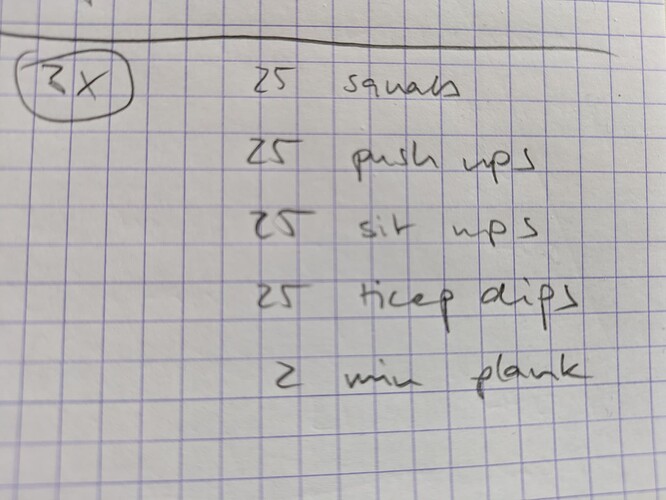 3x 25 squats
25 push ups
25 sit ups
25 ticep dips
2 min plank